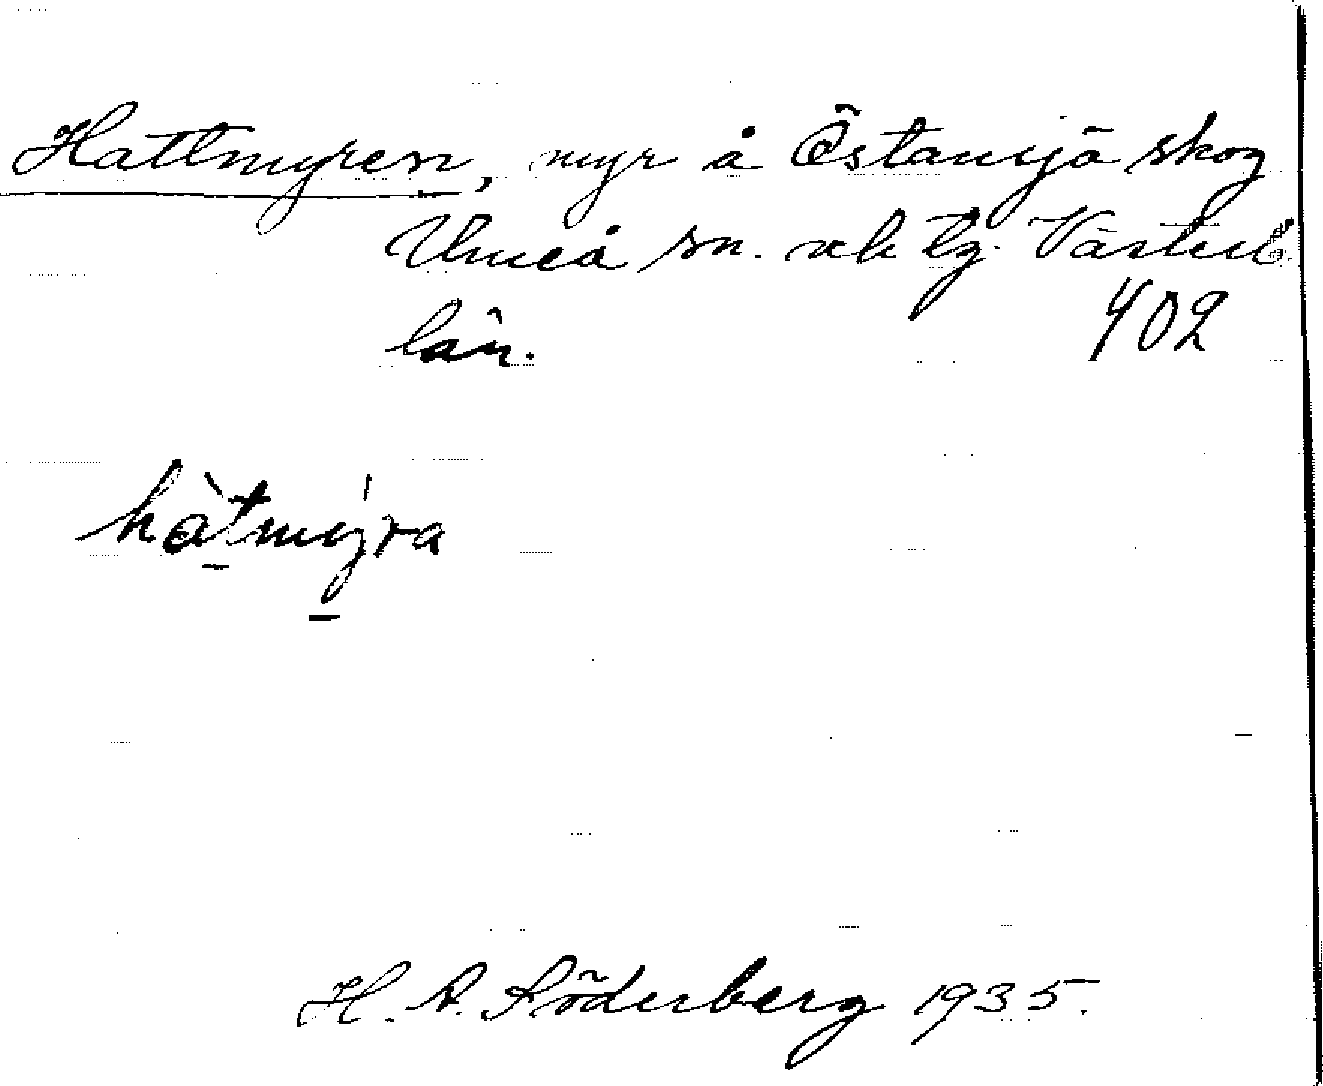 Hattmyren, myr å Östansjö skog
Umeå sn. o. tg. Västerb.
län. 402
hàtmýra
H. A. Söderberg 1935.